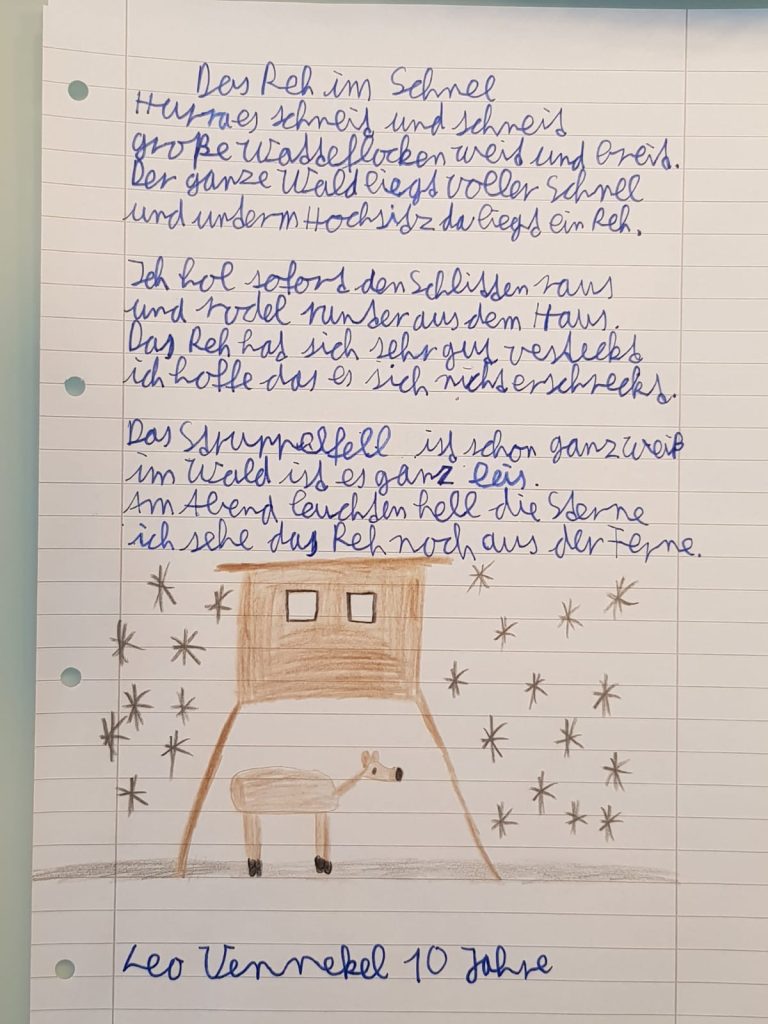 Das Reh im Schnee
Hurra es schneit und schneit
große Watteflocken weit und breit.
Der ganze Wald liegt voller Schnee
und unterm Hochsitz da liegt ein Reh.
Ich hol sofort den Schlitten raus
und rodel runter aus dem Haus.
Das Reh hat sich sehr gut vesteckt
ich hoffe das es sich nicht erschreckt.
Das Struppelfell ist schon ganz weiß
im Wald ist es ganz leis.
Am Abend leuchten hell die Sterne
ich sehe das Reh noch aus der Ferne.
Leo Vennekel 10 Jahre